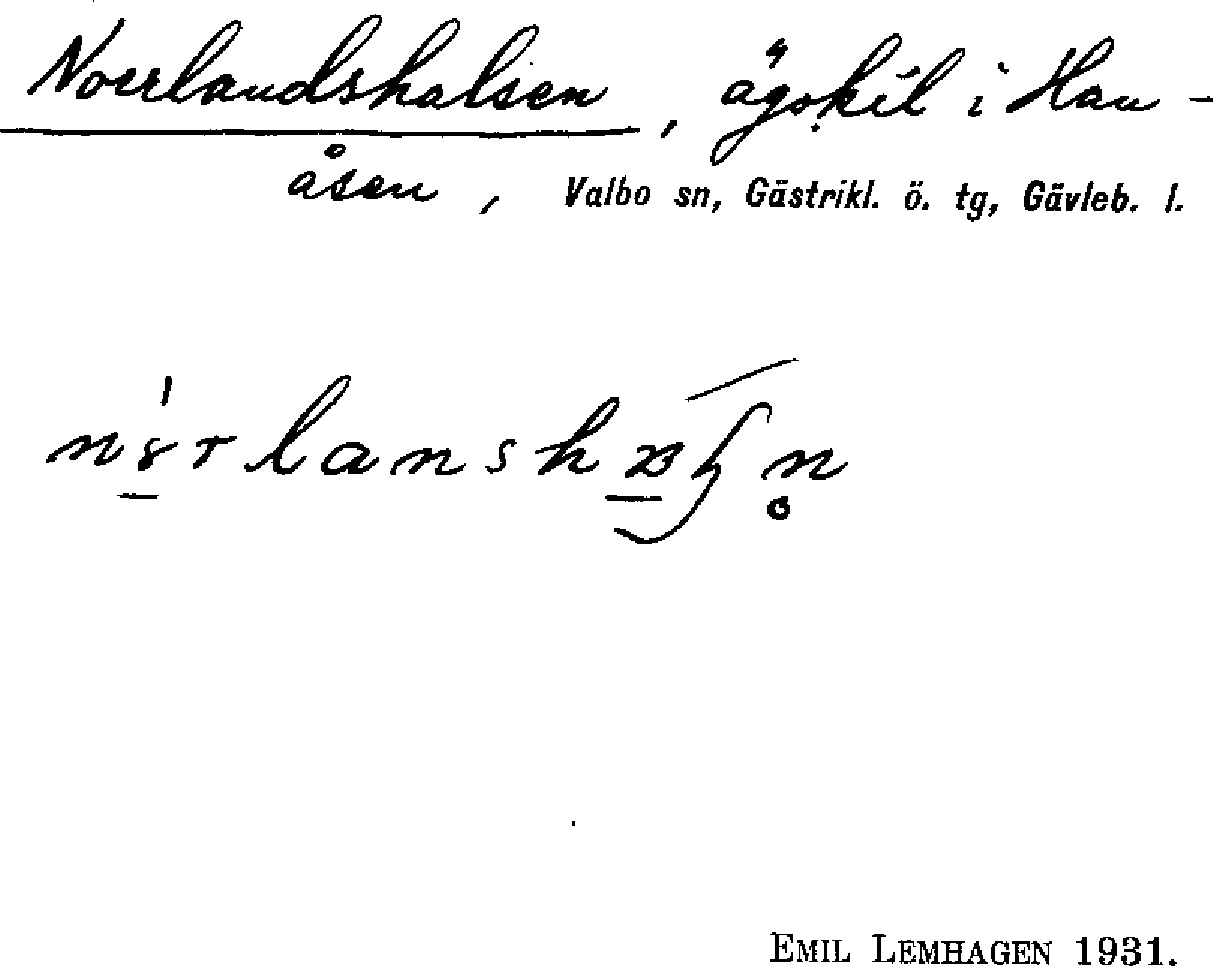 Norrlandshalsen, ägokil i Han-
åsen, Valbo sn, Gästrikl. ö. tg, Gävleb. l.
EMIL LEMHAGEN 1931.